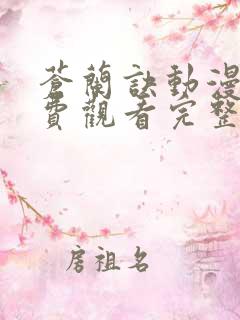 蒼蘭訣動漫
費觀看完整
房祖名